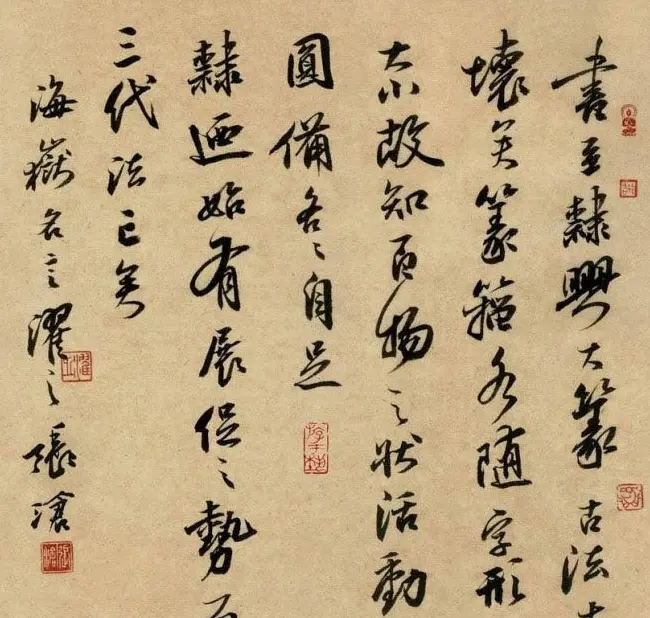 書至隸興大篆古法大
壞矣篆籀各随字形
大小故知百物之狀活動
圓備各〻自足
隸迺始有展促之勢而
三代法亡矣
海嶽名言濯之張滄